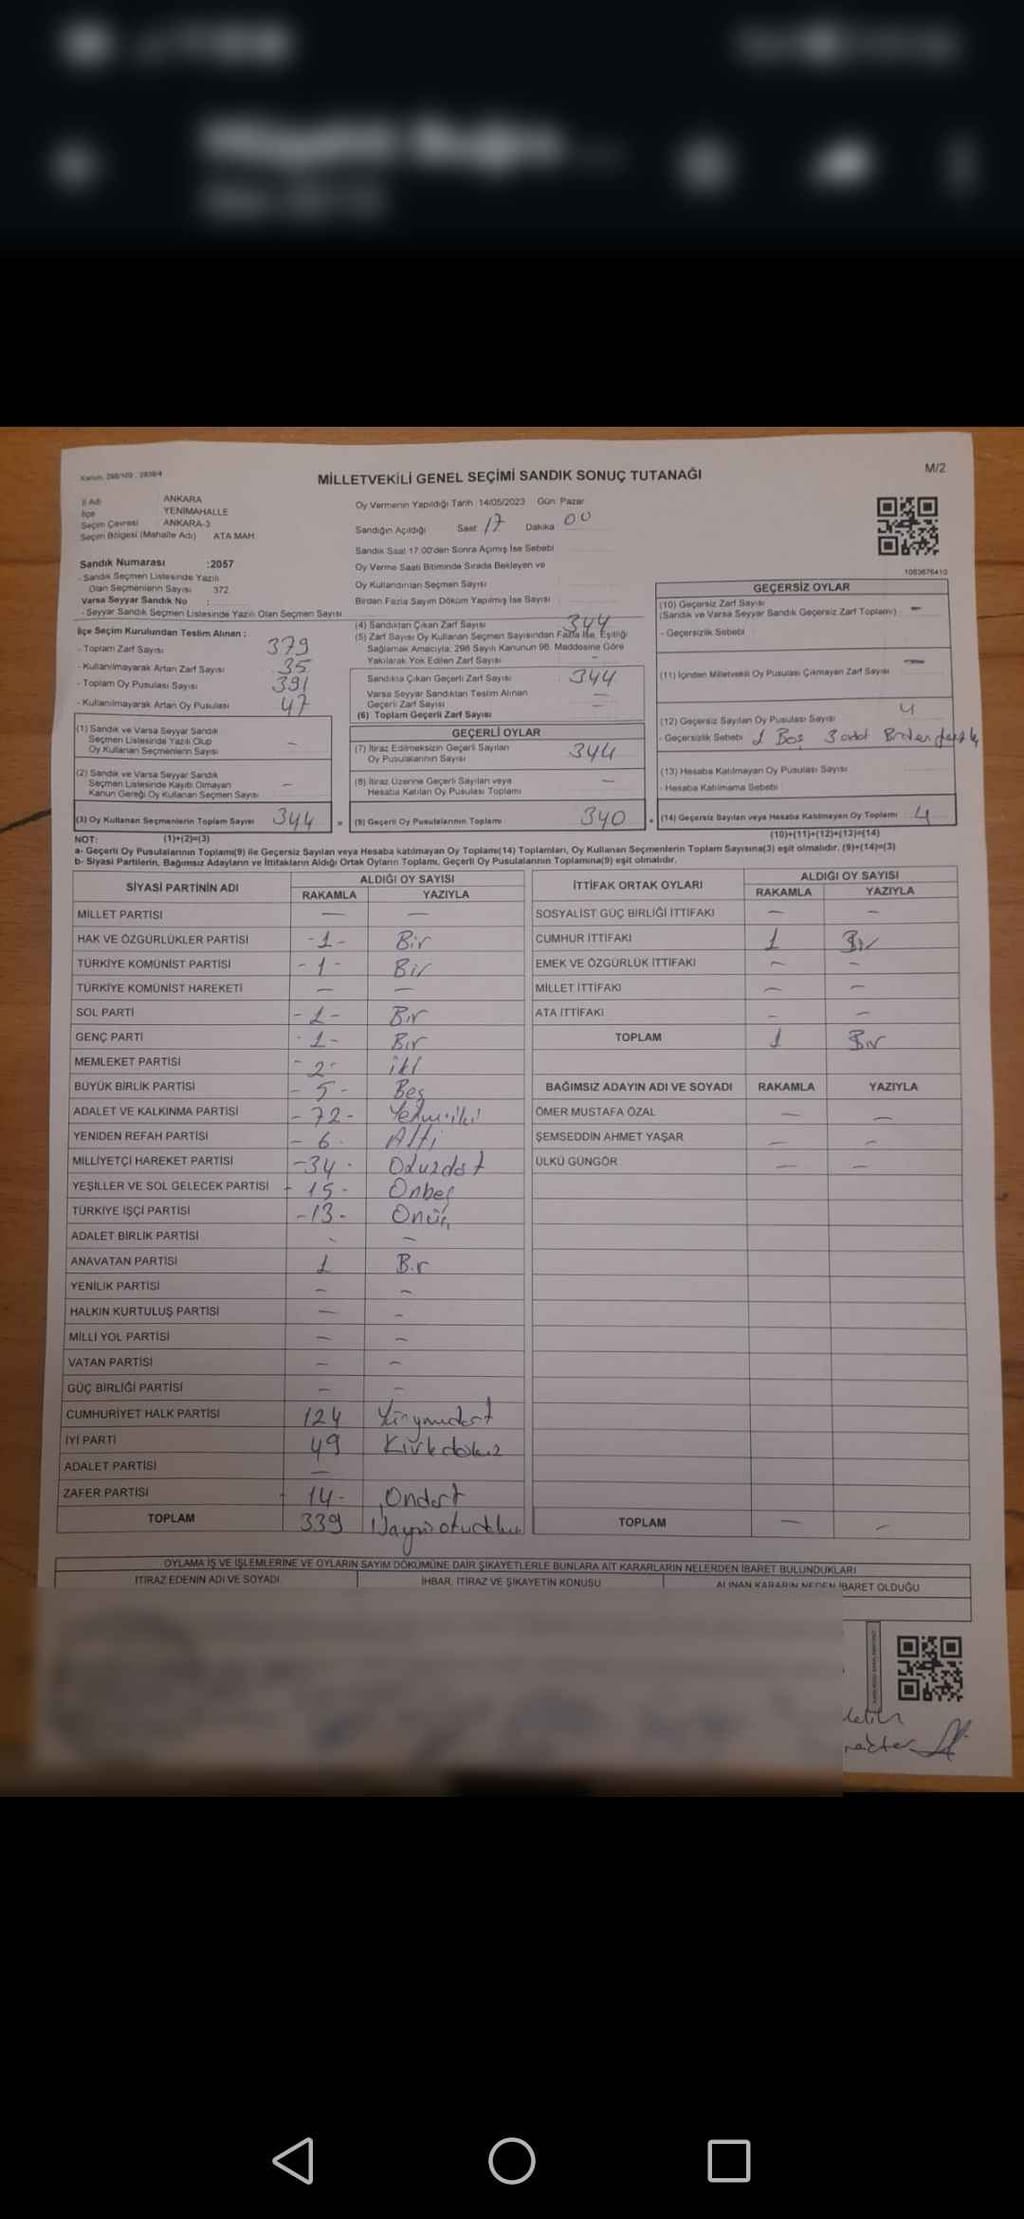 Kanun: 298/105 : 2839/4
MİLLETVEKİLİ GENEL SEÇİMİ SANDIK SONUÇ TUTANAĞI
M/2
İl Adı ANKARA
İlçe YENİMAHALLE
Seçim Çevresi ANKARA-3
Seçim Bölgesi (Mahalle Adı) ATA MAH.
Sandık Numarası :2057
- Sandık Seçmen Listesinde Yazılı
Olan Seçmenlerin Sayısı 372
Varsa Seyyar Sandık No :
- Seyyar Sandık Seçmen Listesinde Yazılı Olan Seçmen Sayısı
Oy Vermenin Yapıldığı Tarih :14/05/2023 Gün: Pazar
Sandığın Açıldığı Saat 17 Dakika 00
Sandık Saat 17.00'den Sonra Açımış İse Sebebi
Oy Verme Saati Bitiminde Sırada Bekleyen ve
Oy Kullandırılan Seçmen Sayısı
Birden Fazla Sayım Döküm Yapılmış İse Sayısı
1083676410
İlçe Seçim Kurulundan Teslim Alınan :
- Toplam Zarf Sayısı 379
- Kullanılmayarak Artan Zarf Sayısı 35
- Toplam Oy Pusulası Sayısı 391
- Kullanılmayarak Artan Oy Pusulası 47
(1) Sandık ve Varsa Seyyar Sandık
Seçmen Listesinde Yazılı Olup
Oy Kullanan Seçmenlerin Sayısı -
(2) Sandık ve Varsa Seyyar Sandık
Seçmen Listesinde Kayıtlı Olmayan
Kanun Gereği Oy Kullanan Seçmen Sayısı -
(3) Oy Kullanan Seçmenlerin Toplam Sayısı 344 =
(4) Sandıktan Çıkan Zarf Sayısı 344
(5) Zarf Sayısı Oy Kullanan Seçmen Sayısından Fazla İse, Eşitliği
Sağlamak Amacıyla, 298 Sayılı Kanunun 98. Maddesine Göre
Yakılarak Yok Edilen Zarf Sayısı -
Sandıkta Çıkan Geçerli Zarf Sayısı 344
Varsa Seyyar Sandıktan Teslim Alınan
Geçerli Zarf Sayısı -
(6) Toplam Geçerli Zarf Sayısı
GEÇERLİ OYLAR
(7) İtiraz Edilmeksizin Geçerli Sayılan
Oy Pusulalarının Sayısı 344
(8) İtiraz Üzerine Geçerli Sayılan veya
Hesaba Katılan Oy Pusulası Toplamı -
(9) Geçerli Oy Pusulalarının Toplamı 340 +
GEÇERSİZ OYLAR
(10) Geçersiz Zarf Sayısı
(Sandık ve Varsa Seyyar Sandık Geçersiz Zarf Toplamı) -
- Geçersizlik Sebebi
(11) İçinden Milletvekili Oy Pusulası Çıkmayan Zarf Sayısı -
(12) Geçersiz Sayılan Oy Pusulası Sayısı 4
- Geçersizlik Sebebi 1 Boş 3 adet
(13) Hesaba Katılmayan Oy Pusulası Sayısı
- Hesaba Katılmama Sebebi
(14) Geçersiz Sayılan veya Hesaba Katılmayan Oy Toplamı 4
NOT: (1)+(2)=(3) (10)+(11)+(12)+(13)=(14)
a- Geçerli Oy Pusulalarının Toplamı(9) ile Geçersiz Sayılan veya Hesaba katılmayan Oy Toplamı(14) Toplamları, Oy Kullanan Seçmenlerin Toplam Sayısına(3) eşit olmalıdır. (9)+(14)=(3)
b- Siyasi Partilerin, Bağımsız Adayların ve İttifakların Aldığı Ortak Oyların Toplamı, Geçerli Oy Pusulalarının Toplamına(9) eşit olmalıdır.
SİYASİ PARTİNİN ADI ALDIĞI OY SAYISI
RAKAMLA YAZIYLA
MİLLET PARTİSİ - -
HAK VE ÖZGÜRLÜKLER PARTİSİ -1- Bir
TÜRKİYE KOMÜNİST PARTİSİ -1- Bir
TÜRKİYE KOMÜNİST HAREKETİ - -
SOL PARTİ -1- Bir
GENÇ PARTİ -1- Bir
MEMLEKET PARTİSİ -2- iki
BÜYÜK BİRLİK PARTİSİ -5- Beş
ADALET VE KALKINMA PARTİSİ -72- Yetmişiki
YENİDEN REFAH PARTİSİ -6- Altı
MİLLİYETÇİ HAREKET PARTİSİ -34- Otuzdört
YEŞİLLER VE SOL GELECEK PARTİSİ -15- Onbeş
TÜRKİYE İŞÇİ PARTİSİ -13- Onüç
ADALET BİRLİK PARTİSİ - -
ANAVATAN PARTİSİ 1 Bir
YENİLİK PARTİSİ - -
HALKIN KURTULUŞ PARTİSİ - -
MİLLİ YOL PARTİSİ - -
VATAN PARTİSİ - -
GÜÇ BİRLİĞİ PARTİSİ - -
CUMHURİYET HALK PARTİSİ 124
İYİ PARTİ 49 Kırkdokuz
ADALET PARTİSİ -
ZAFER PARTİSİ 14- Ondört
TOPLAM 339
İTTİFAK ORTAK OYLARI ALDIĞI OY SAYISI
RAKAMLA YAZIYLA
SOSYALİST GÜÇ BİRLİĞİ İTTİFAKI - -
CUMHUR İTTİFAKI 1 Bir
EMEK VE ÖZGÜRLÜK İTTİFAKI - -
MİLLET İTTİFAKI - -
ATA İTTİFAKI - -
TOPLAM 1 Bir
BAĞIMSIZ ADAYIN ADI VE SOYADI RAKAMLA YAZIYLA
ÖMER MUSTAFA ÖZAL - -
ŞEMSEDDİN AHMET YAŞAR - -
ÜLKÜ GÜNGÖR - -
TOPLAM - -
OYLAMA İŞ VE İŞLEMLERİNE VE OYLARIN SAYIM DÖKÜMÜNE DAİR ŞİKAYETLERLE BUNLARA AİT KARARLARIN NELERDEN İBARET BULUNDUKLARI
İTİRAZ EDENİN ADI VE SOYADI İHBAR, İTİRAZ VE ŞİKAYETİN KONUSU ALINAN KARARIN NEDEN İBARET OLDUĞU